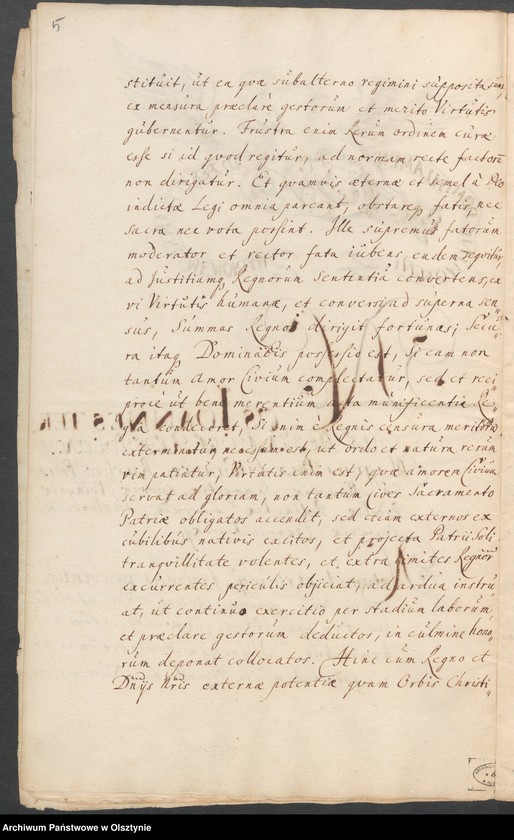 5
stituit, ut ea quæ subalterno regimini supposita sunt,
ex mensura præclare gestorum et merito Virtutis
gubernentur. Frustra enim Rerum ordinem curæ
esse si id quod regitur, ad normam recte factorũ
non dirigatur. Et quamvis æternæ et semel à Deo
indictæ Legi omnia pareant, obstareq fatis, nec
sacra nec vota possint. Ille supremus fatorum
moderator et rector fata iubens, eadem sequitur,
ad Justitiamq Regnorum Sententia convertens, ea
vi Virtutis humanæ, et conversis ad superna sen„
sus, Summas Regnor dirigit fortunas; Secu„
ra itaq Dominantis possessio est, Si eam non
tantum Amor Civium complectatur, sed et reci
procè ut bene merentium acta munificentia Re„
gia condecoret, Si enim è Regnis censura meritorũ
exterminatur necessum est, ut ordo et natura rerum
vim patiatur, Virtutis enim est, quæ amorem Civium
servat ad gloriam, non tantum Cives Sacramento
Patriæ obligatos accendit, sed etiam externos ex
cubilibus nativis excitos, et projecta Patrii Soli
tranquillitate volentes, et extra limites Regnorũ
excurrentes periculis objiciat, ad ardua instru
at, ut continuo exercitio per stadium laborum,
et præclare gestorum deductos, in culmine hono„
rum deponat collocatos. Hinc cum Regno et
Dnijs Nris externæ potentiæ quam Orbis Christi„
Archiwum Państwowe w Olsztynie